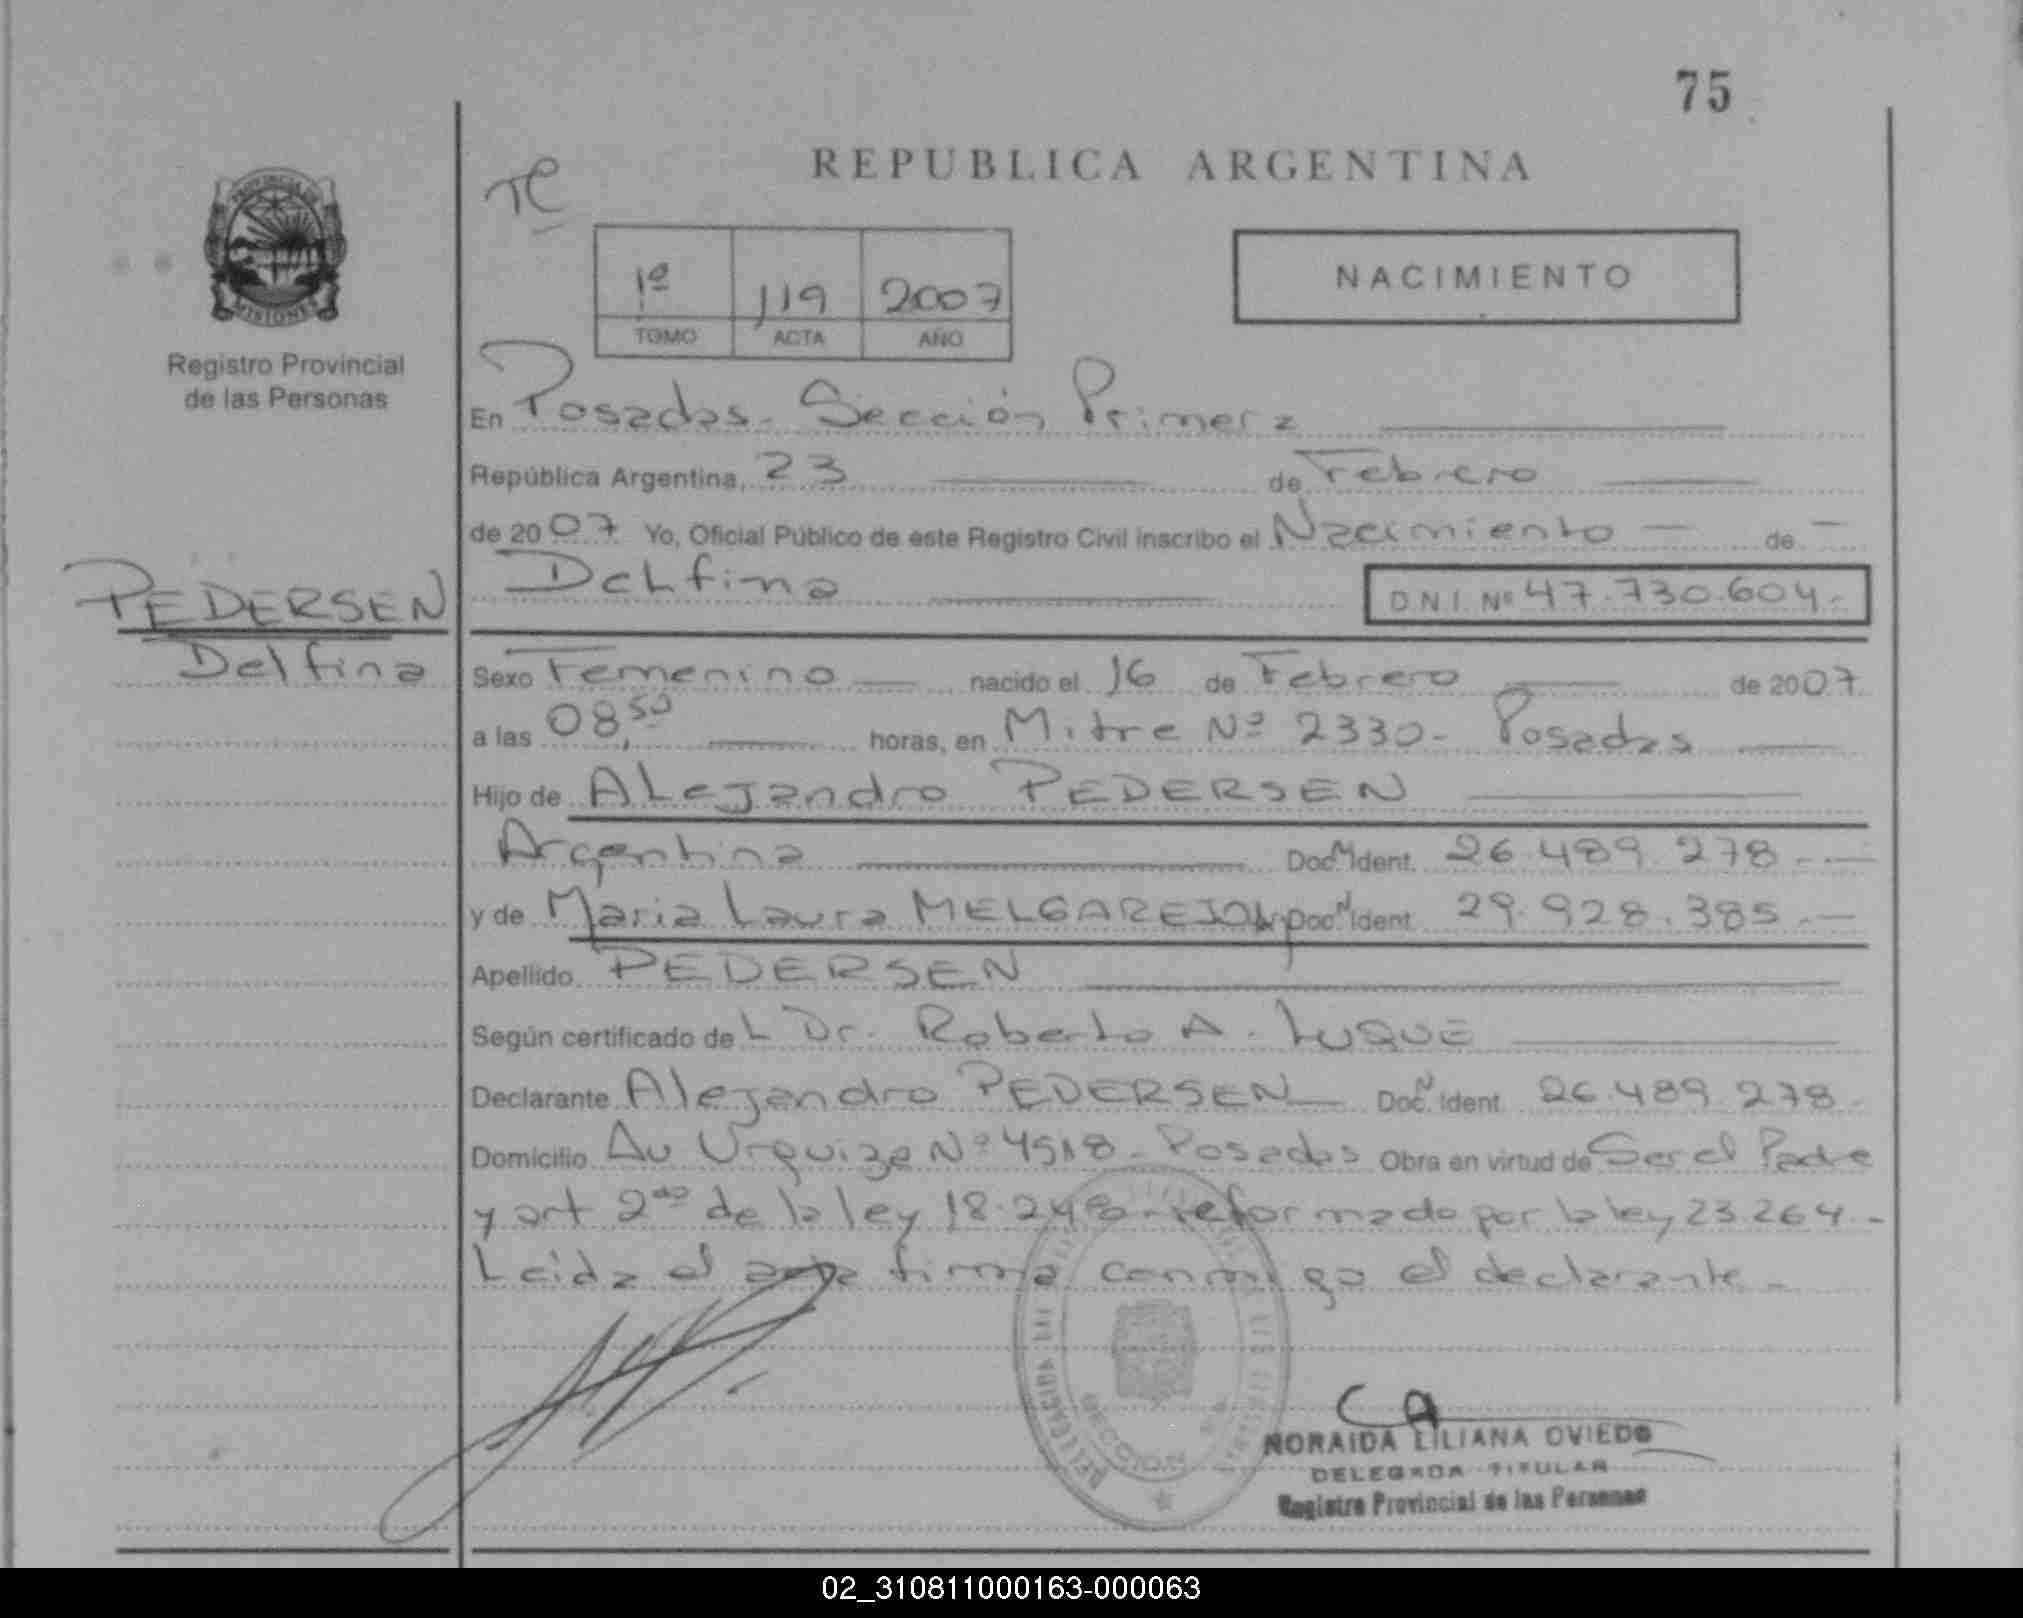 75
REPUBLICA ARGENTINA
TC
1º 119 2007
TOMO ACTA AÑO
NACIMIENTO
PROVINCIA DE
MISIONES
Registro Provincial
de las Personas
En Posadas - Sección Primera
República Argentina, 23 de Febrero
de 2007 Yo, Oficial Público de este Registro Civil inscribo el Nacimiento de
Delfina D.N.I. Nº 47.730.604.-
PEDERSEN
Delfina
Sexo Femenino nacido el 16 de Febrero de 2007
a las 08,50 horas, en Mitre Nº 2330 - Posadas
Hijo de Alejandro PEDERSEN
Argentina Doc. N Ident. 26.489.278.-
y de Maria Laura MELGAREJO Arg Doc. N Ident. 29.928.385.-
Apellido PEDERSEN
Según certificado del Dr. Roberto A. LUQUE
Declarante Alejandro PEDERSEN Doc. N Ident. 26.489.278-
Domicilio Av Urquiza Nº 4518 - Posadas Obra en virtud de Ser el Padre
y art 2do de la ley 18.248 - reformado por la ley 23.264.-
Leida el acta firma conmigo el declarante -
NORAIDA LILIANA OVIEDO
DELEGADA TITULAR
Registro Provincial de las Personas
02_310811000163-000063